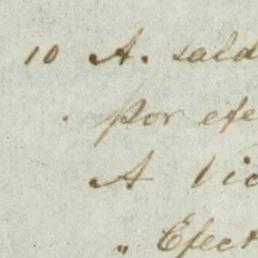 10 A. sald
por efe
A Vic
" Efect